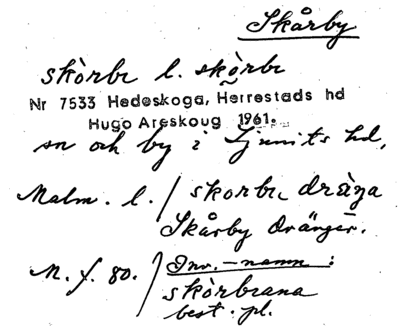 Skårby
skòrbı l. skòrbı
Nr 7533 Hedeskoga, Herrestads hd
Hugo Areskoug 1961.
sn och by i Ljunits hd,
Malm. l. / skorbı dräŋa
Skårby dränger.
M. f. 80. / Inv.-namn :
skòrbıana
best. pl.